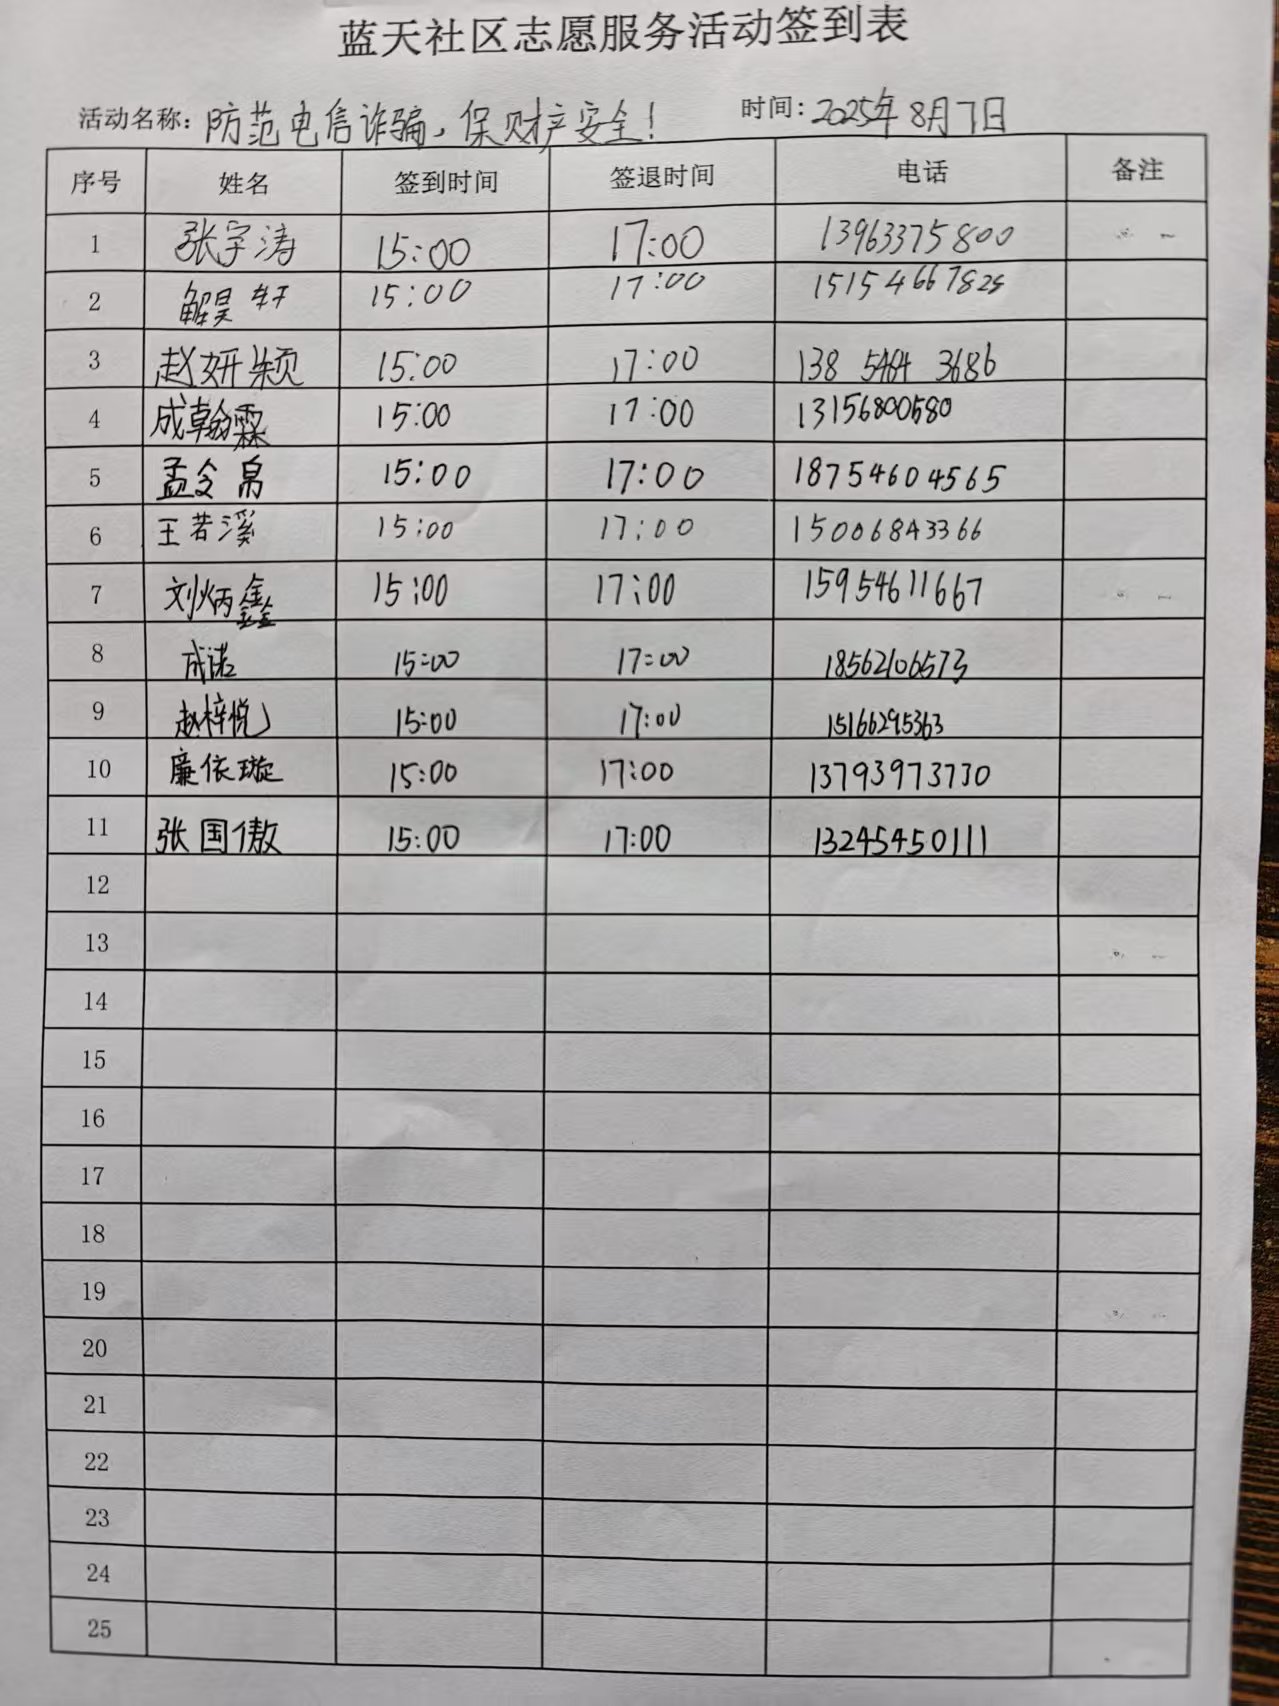 蓝天社区志愿服务活动签到表
活动名称：防范电信诈骗，保财产安全！ 时间：2025年8月7日
序号 姓名 签到时间 签退时间 电话 备注
1 张宇涛 15:00 17:00 13963375800
2 解昊轩 15:00 17:00 15154667825
3 赵妍颖 15:00 17:00 138 5464 3686
4 成翰霖 15:00 17:00 13156800580
5 孟令帛 15:00 17:00 18754604565
6 王若溪 15:00 17:00 15006843366
7 刘炳鑫 15:00 17:00 15954611667
8 成诺 15:00 17:00 18562106573
9 赵梓悦 15:00 17:00 15166295363
10 廉依璇 15:00 17:00 13793973730
11 张国傲 15:00 17:00 13245450111
12
13
14
15
16
17
18
19
20
21
22
23
24
25